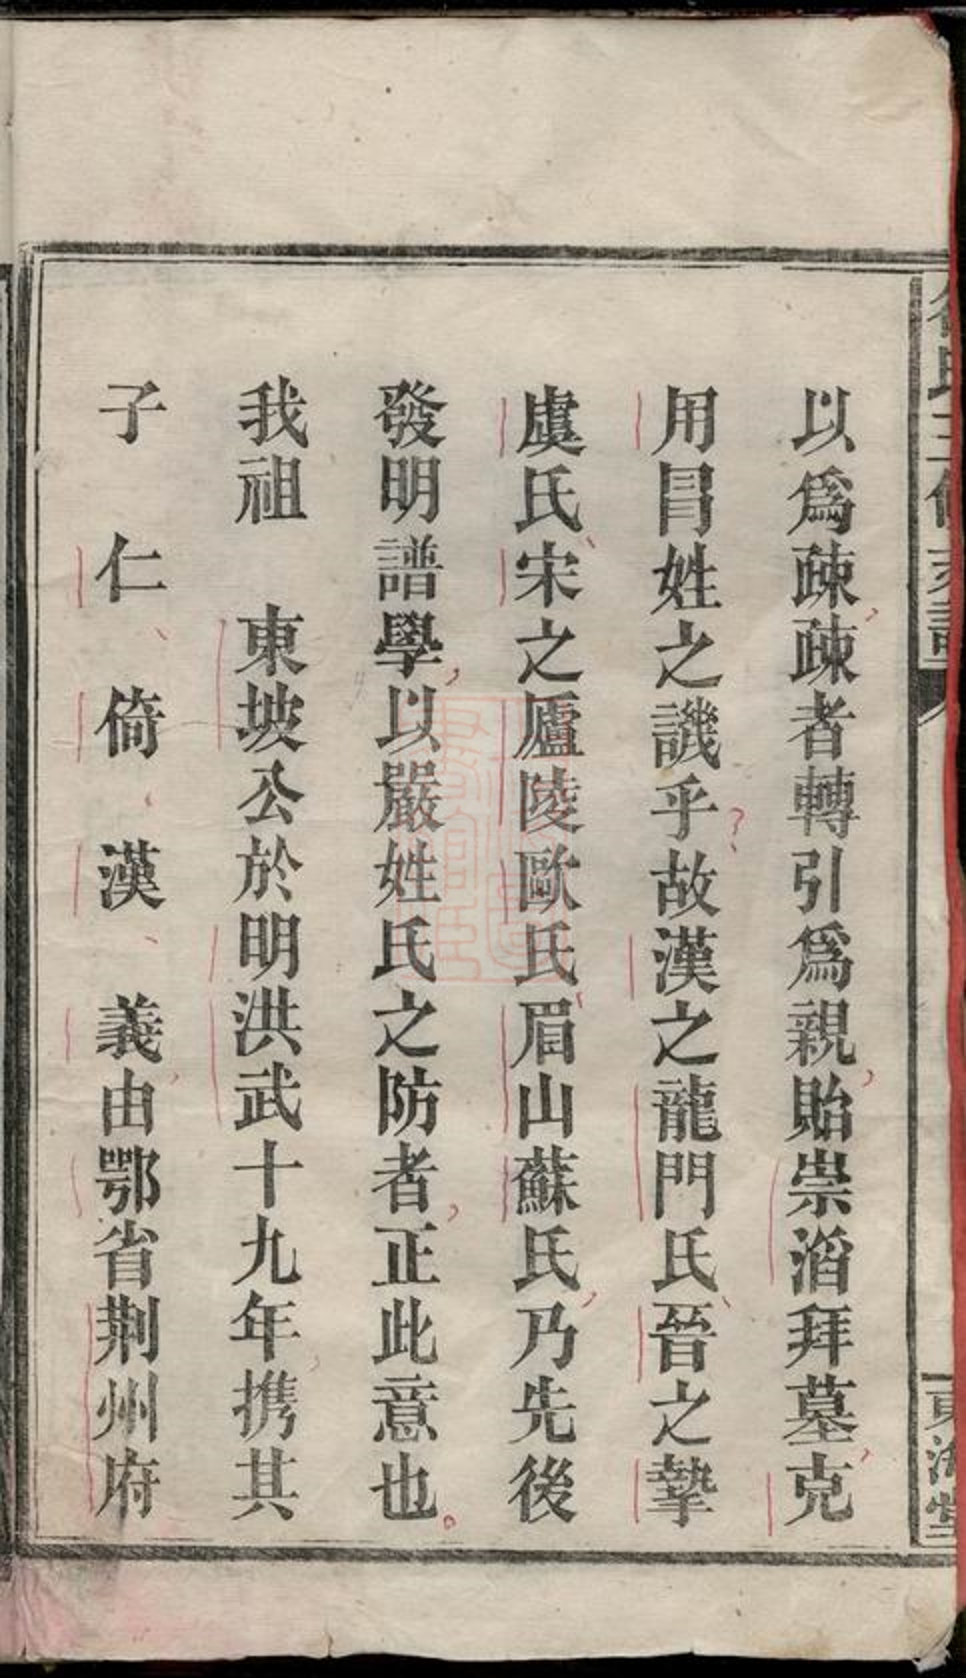 以爲疎疎者轉引爲親貽崇滔拜墓克
用冒姓之譏乎故漢之龍門氏晉之摯
虞氏宋之廬陵歐氏眉山蘇氏乃先後
發明譜學以嚴姓氏之防者正此意也
我祖 東坡公於明洪武十九年携其
子 仁 倚 漢 義由鄂省荆州府
東海堂